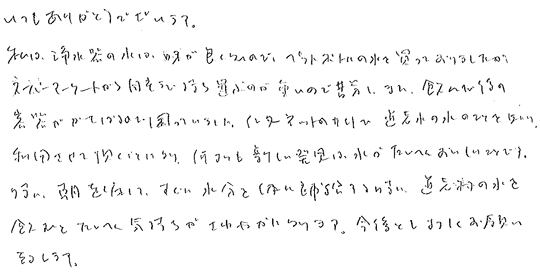 いつもありがとうございます。
私は、浄水器の水は、味が良くないので、ペットボトルの水を買っておりましたが
スーパーマーケットから自宅まで持ち運ぶのが重いので苦労し、また、飲んだ後の
容器がかさばるので困っていました。インターネットのサイトで 水の水のことを知り、
利用させて頂くことになり、何よりも新しい発見は、水がたいへんおいしいことです。
特に、朝起床して、すぐに水分を体に補給する時に、 の水を
飲むとたいへん気持ちがさわやかになります。今後ともよろしくお願い
致します。